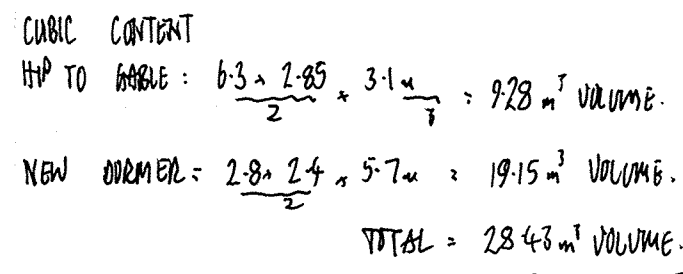 CUBIC CONTENT
HIP TO GABLE : 6.3 x 2.85 / 2 x 3.1m / 3 = 9.28 m³ VOLUME.
NEW DORMER = 2.8 x 2.4 / 2 x 5.7m = 19.15 m³ VOLUME.
TOTAL = 28.43 m³ VOLUME.